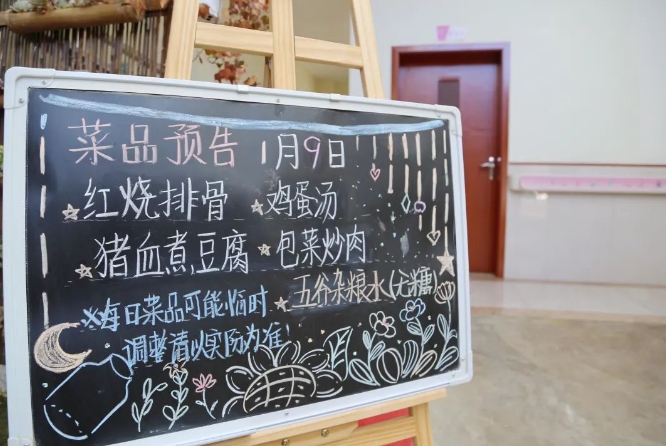 菜品预告 1月9日
☆红烧排骨 ☆鸡蛋汤
☆猪血煮豆腐 ☆包菜炒肉
☆五谷杂粮水(无糖)
※每日菜品可能临时
调整请以实际为准!